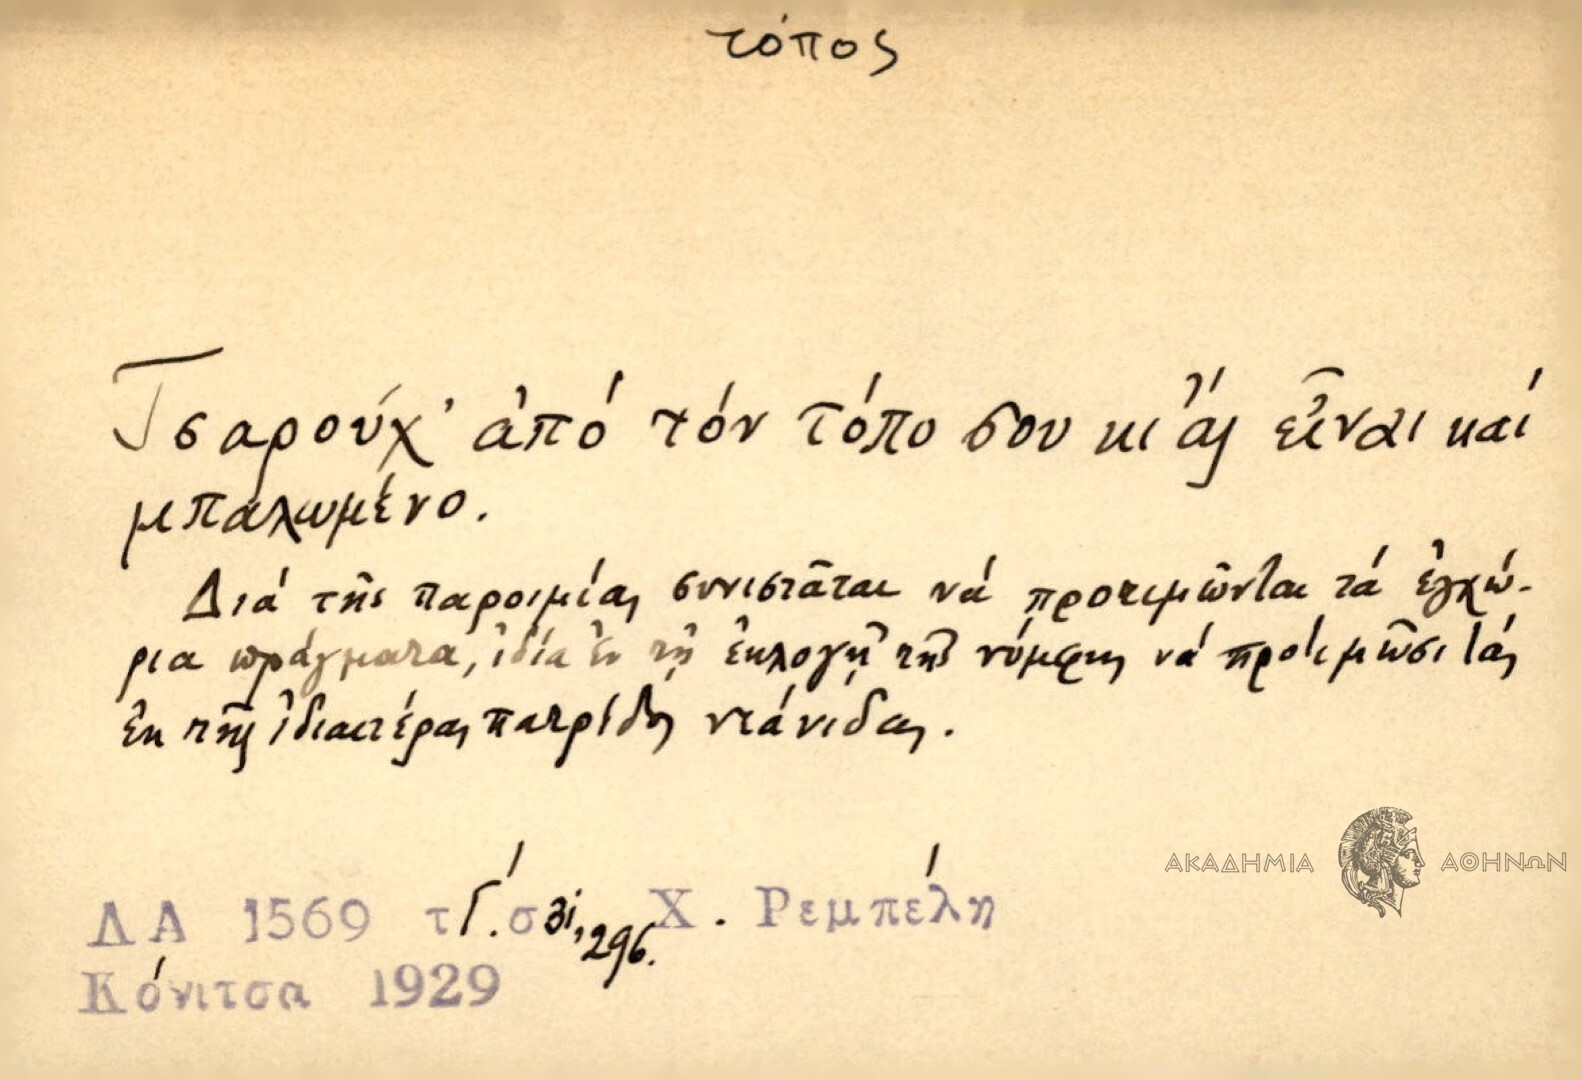 τόπος
Τσαρούχ' ἀπό τόν τόπο σου κι ἄς εἶναι καί
μπαλωμένο.
Διά τῆς παροιμίας συνιστᾶται νά προτιμῶνται τά ἐγχώ-
ρια πράγματα, ἰδία ἐν τῇ ἐκλογῇ τῆς νύμφης νά προτιμῶσι τάς
ἐκ τῆς ἰδιαιτέρας πατρίδος νεάνιδας.
ΑΚΑΔΗΜΙΑ ΑΘΗΝΩΝ
ΛΑ 1569 τ Γ΄. σ 31, 296. Χ. Ρεμπέλη
Κόνιτσα 1929